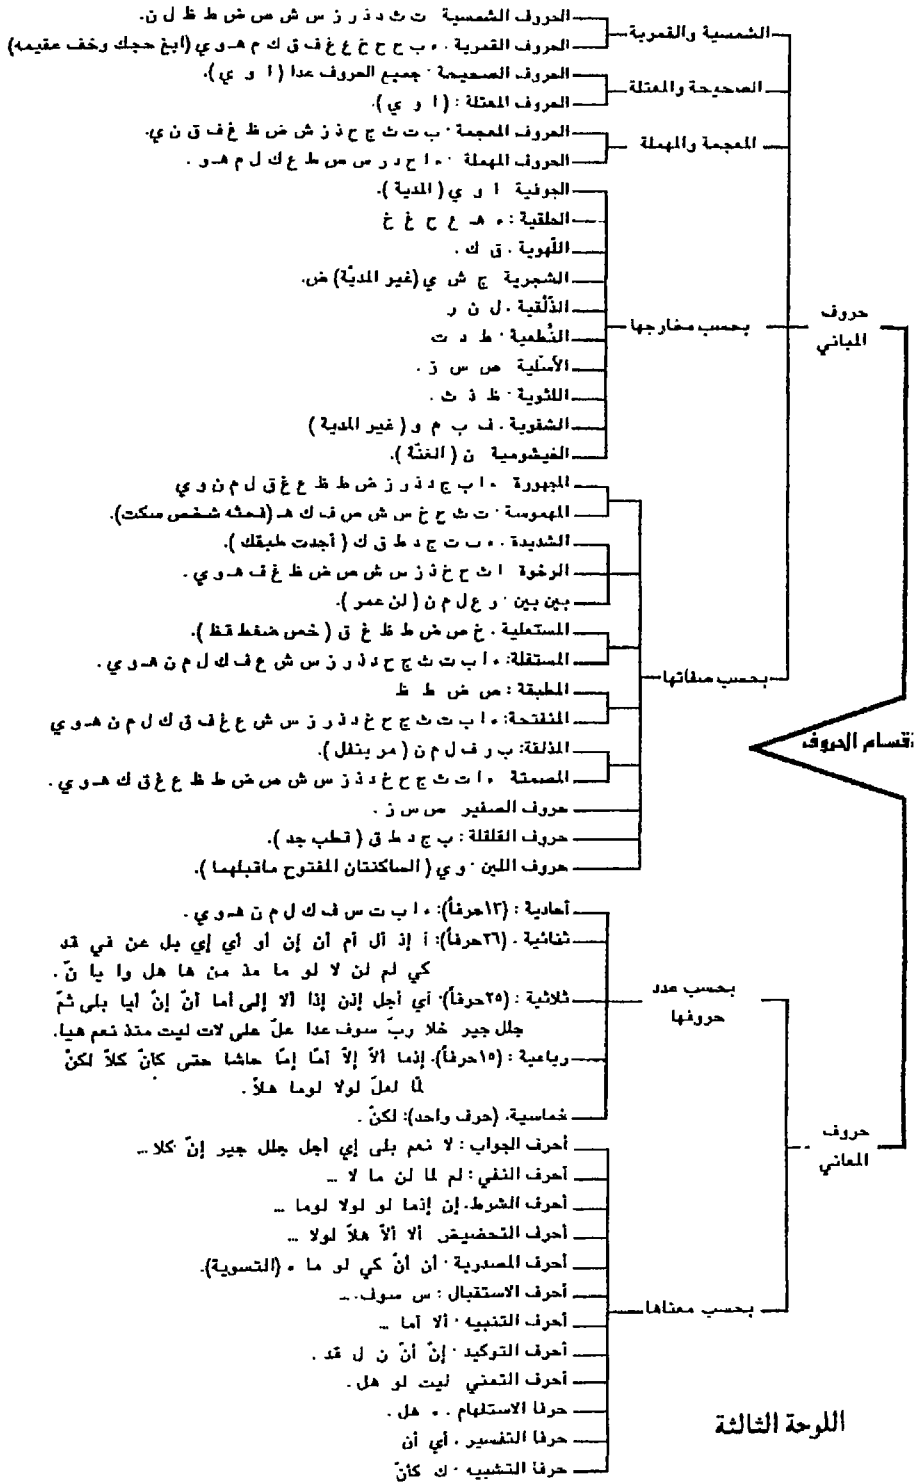 أقسام الحروف
حروف المباني
الشمسية والقمرية
الحروف الشمسية ت ث د ذ ر ز س ش ص ض ط ظ ل ن.
الحروف القمرية . ء ب ح ج خ ع غ ف ق ك م هـ و ي (ابغ حجك وخف عقيمه)
الصحيحة والمعتلة
الحروف الصحيحة · جميع الحروف عدا ( ا و ي ).
الحروف المعتلة : ( ا و ي ).
المعجمة والمهملة
الحروف المعجمة · ب ت ث ج خ ذ ز ش ض ظ غ ف ق ن ي.
الحروف المهملة · ء ا ح د ر س ص ط ع ك ل م هـ و .
بحسب مخارجها
الجوفية ا و ي ( المدية ).
الحلقية : ء هـ ع ح غ خ
اللّهوية . ق ك .
الشجرية ج ش ي (غير المديّة) ض.
الذّلْقية . ل ن ر
النُطعية · ط د ت
الأسَلية ص س ز .
اللثوية · ظ ذ ث .
الشفوية . ف ب م و ( غير المدية )
الخيشومية ن ( الغنّة ).
بحسب صفاتها
المجهورة ء ا ب ج د ذ ر ز ض ط ظ ع غ ق ل م ن و ي
المهموسة · ت ث ح خ س ش ص ف ك هـ (فحثه شخص سكت).
الشديدة . ء ب ت ج د ط ق ك ( أجدت طبقك ).
الرخوة ا ث ح خ ذ ز س ش ص ض ظ غ ف هـ و ي .
بين بين · ر ع ل م ن ( لن عمر ).
المستعلية . خ ص ض ط ظ غ ق ( خص ضغط قظ ).
المستفلة: ء ا ب ت ث ج ح د ذ ر ز س ش ع ف ك ل م ن هـ و ي .
المطبقة : ص ض ط ظ
المنفتحة: ء ا ب ت ث ج ح خ د ذ ر ز س ش ع غ ف ق ك ل م ن هـ و ي
المذلقة: ب ر ف ل م ن ( مر بنفل ).
المصمتة ء ا ت ث ج ح خ د ذ ز س ش ص ض ط ظ ع غ ق ك هـ و ي .
حروف الصفير ص س ز .
حروف القلقلة : ب ج د ط ق ( قطب جد ).
حروف اللين · و ي ( الساكنتان المفتوح ماقبلهما ).
حروف المعاني
بحسب عدد حروفها
أحادية : (١٣حرفاً): ء ا ب ت س ف ك ل م ن هـ و ي .
ثنائية . (٢٦حرفاً): آ إذ أل أم أن إن أو أي إي بل عن في قد
كي لم لن لا لو ما مذ من ها هل وا يا نّ .
ثلاثية : (٢٥حرفاً)· آي أجل إذن إذا ألا إلى أما أنّ إنّ أيا بلى ثمّ
جلل جير خلا ربّ سوف عدا علّ على لات ليت منذ نعم هيا.
رباعية : (١٥حرفاً). إذما ألاّ إلاّ أمّا إمّا حاشا حتى كأنّ كلاّ لكنْ
لمّا لعلّ لولا لوما هلاّ .
خماسية. (حرف واحد): لكنّ .
بحسب معناها
أحرف الجواب : لا نعم بلى إي أجل جلل جير إنّ كلا ...
أحرف النفي : لم لما لن ما لا ...
أحرف الشرط. إن إذما لو لولا لوما ...
أحرف التحضيض ألا ألاّ هلاّ لولا ...
أحرف المصدرية · أن أنّ كي لو ما ء (التسوية).
أحرف الاستقبال : س سوف. ...
أحرف التنبيه · ألا أما ...
أحرف التوكيد · إنّ أنّ ن ل قد .
أحرف التمني ليت لو هل .
حرفا الاستفهام . ء هل .
حرفا التفسير . أي أن
حرفا التشبيه · ك كأنّ
اللوحة الثالثة